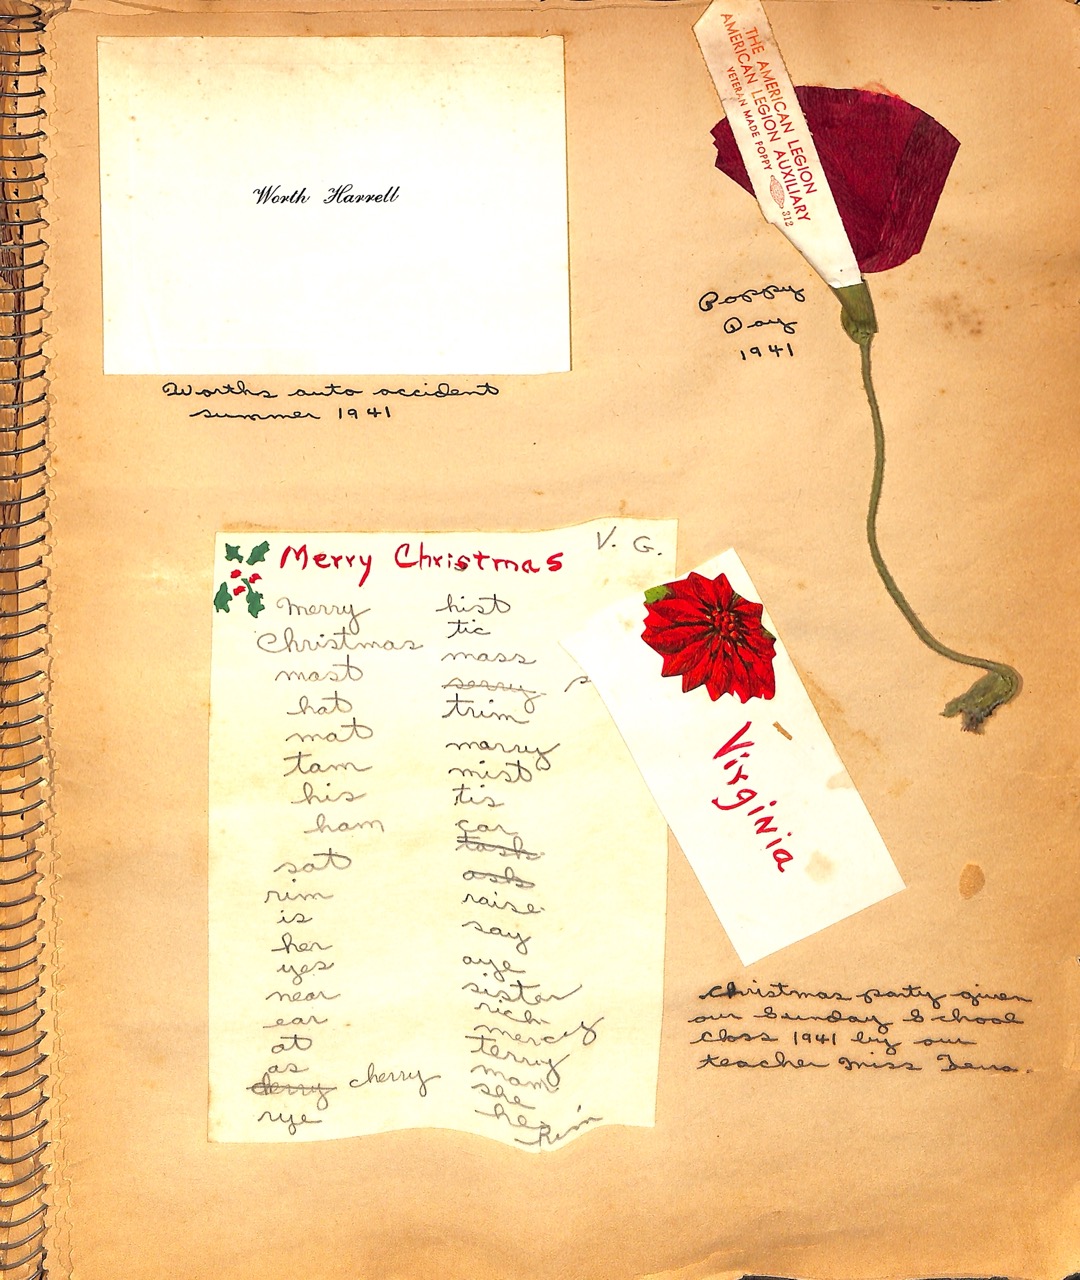 Worth Harrell
Worths auto accident
summer 1941
THE AMERICAN LEGION
AMERICAN LEGION AUXILIARY
VETERAN MADE POPPY
312
Poppy
Day
1941
V. G.
Merry Christmas
merry
Christmas
mast
hat
mat
tam
his
ham
sat
rim
is
her
yes
near
ear
at
as
derry cherry
rye
hist
tic
mass
serry s
trim
marry
mist
tis
car
task
ask
raise
say
aye
sister
rich
mercy
terry
mam
she
he
him
Virginia
Christmas party given
our Sunday School
Class 1941 by our
teacher Miss